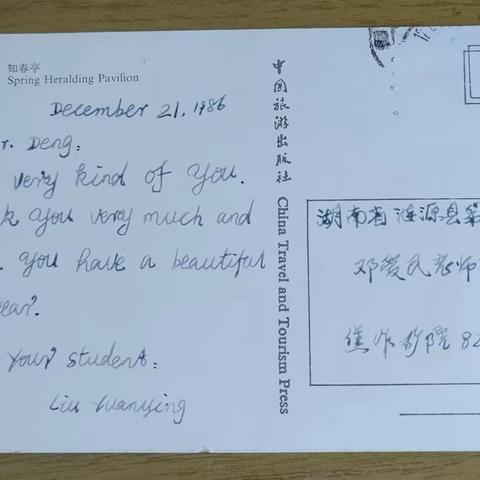 知春亭
Spring Heralding Pavilion
December 21, 1986
r. Deng:
very kind of you.
k you very much and
. you have a beautiful
year.
Your student:
Liu Yuanying
中国旅游出版社 China Travel and Tourism Press
湖南省涟源县第
邓爱民老师
焦作矿院 82